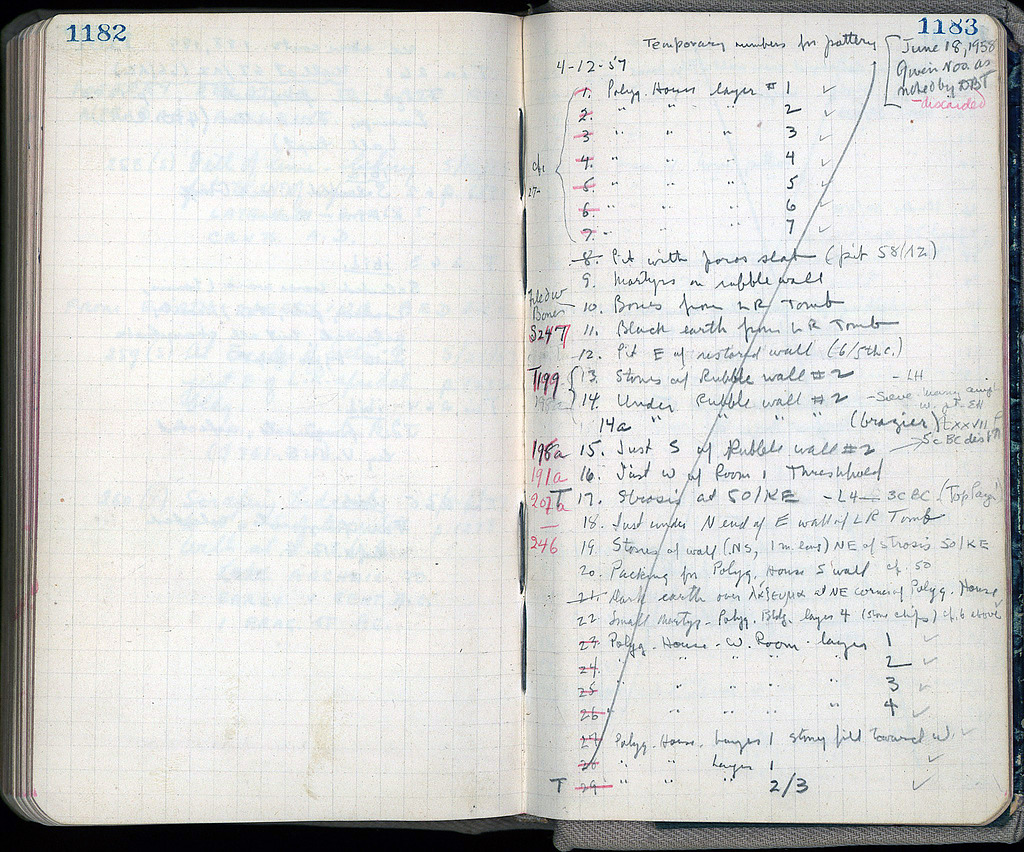 1182
1183
Temporary numbers for pottery
June 18, 1958
Given Nos. as
noted by DBT
-discarded
4-12-57
1. Polyg. House layer # 1 ✓
2. " " " 2 ✓
3 " " " 3 ✓
4. " " " 4 ✓
5. " " " 5 ✓
6. " " " 6 ✓
7. " " " 7 ✓
8. Pit with poros slab (pit 58/12)
9. Martyrs on rubble wall
Bones 10. Bones from LR Tomb
S247 11. Black earth from LR Tomb
12. Pit E of restored wall (6/5th c.)
T199 13. Stones of Rubble wall #2 - LH
198a 14. Under Rubble wall #2
14a " " " " (brazier) LXXVII
198a 15. Just S of Rubble wall #2
191a 16. Just W of Room 1 Threshold
207a T 17. Strosis at 50/KE - L4 - 3C BC.
18. Just under N end of E wall of LR Tomb
246 19. Stones of wall (NS, 1 m. long) NE of strosis 50/KE
20. Packing for Polyg. House S wall cf. 50
21. Dark earth over λάξευμα at NE corner of Polyg. House
22 Small Martyr - Polyg. Bldg. layer 4 (stone chips) cf. 6 above
23 Polyg. House - W. Room - layer 1 ✓
24. " " " " 2 ✓
25 " " " " 3 ✓
26 " " " " 4 ✓
27 Polyg. House. Layer 1 stony fill toward W. ✓
28 " " Layer 1 ✓
T 29 " " " 2/3 ✓